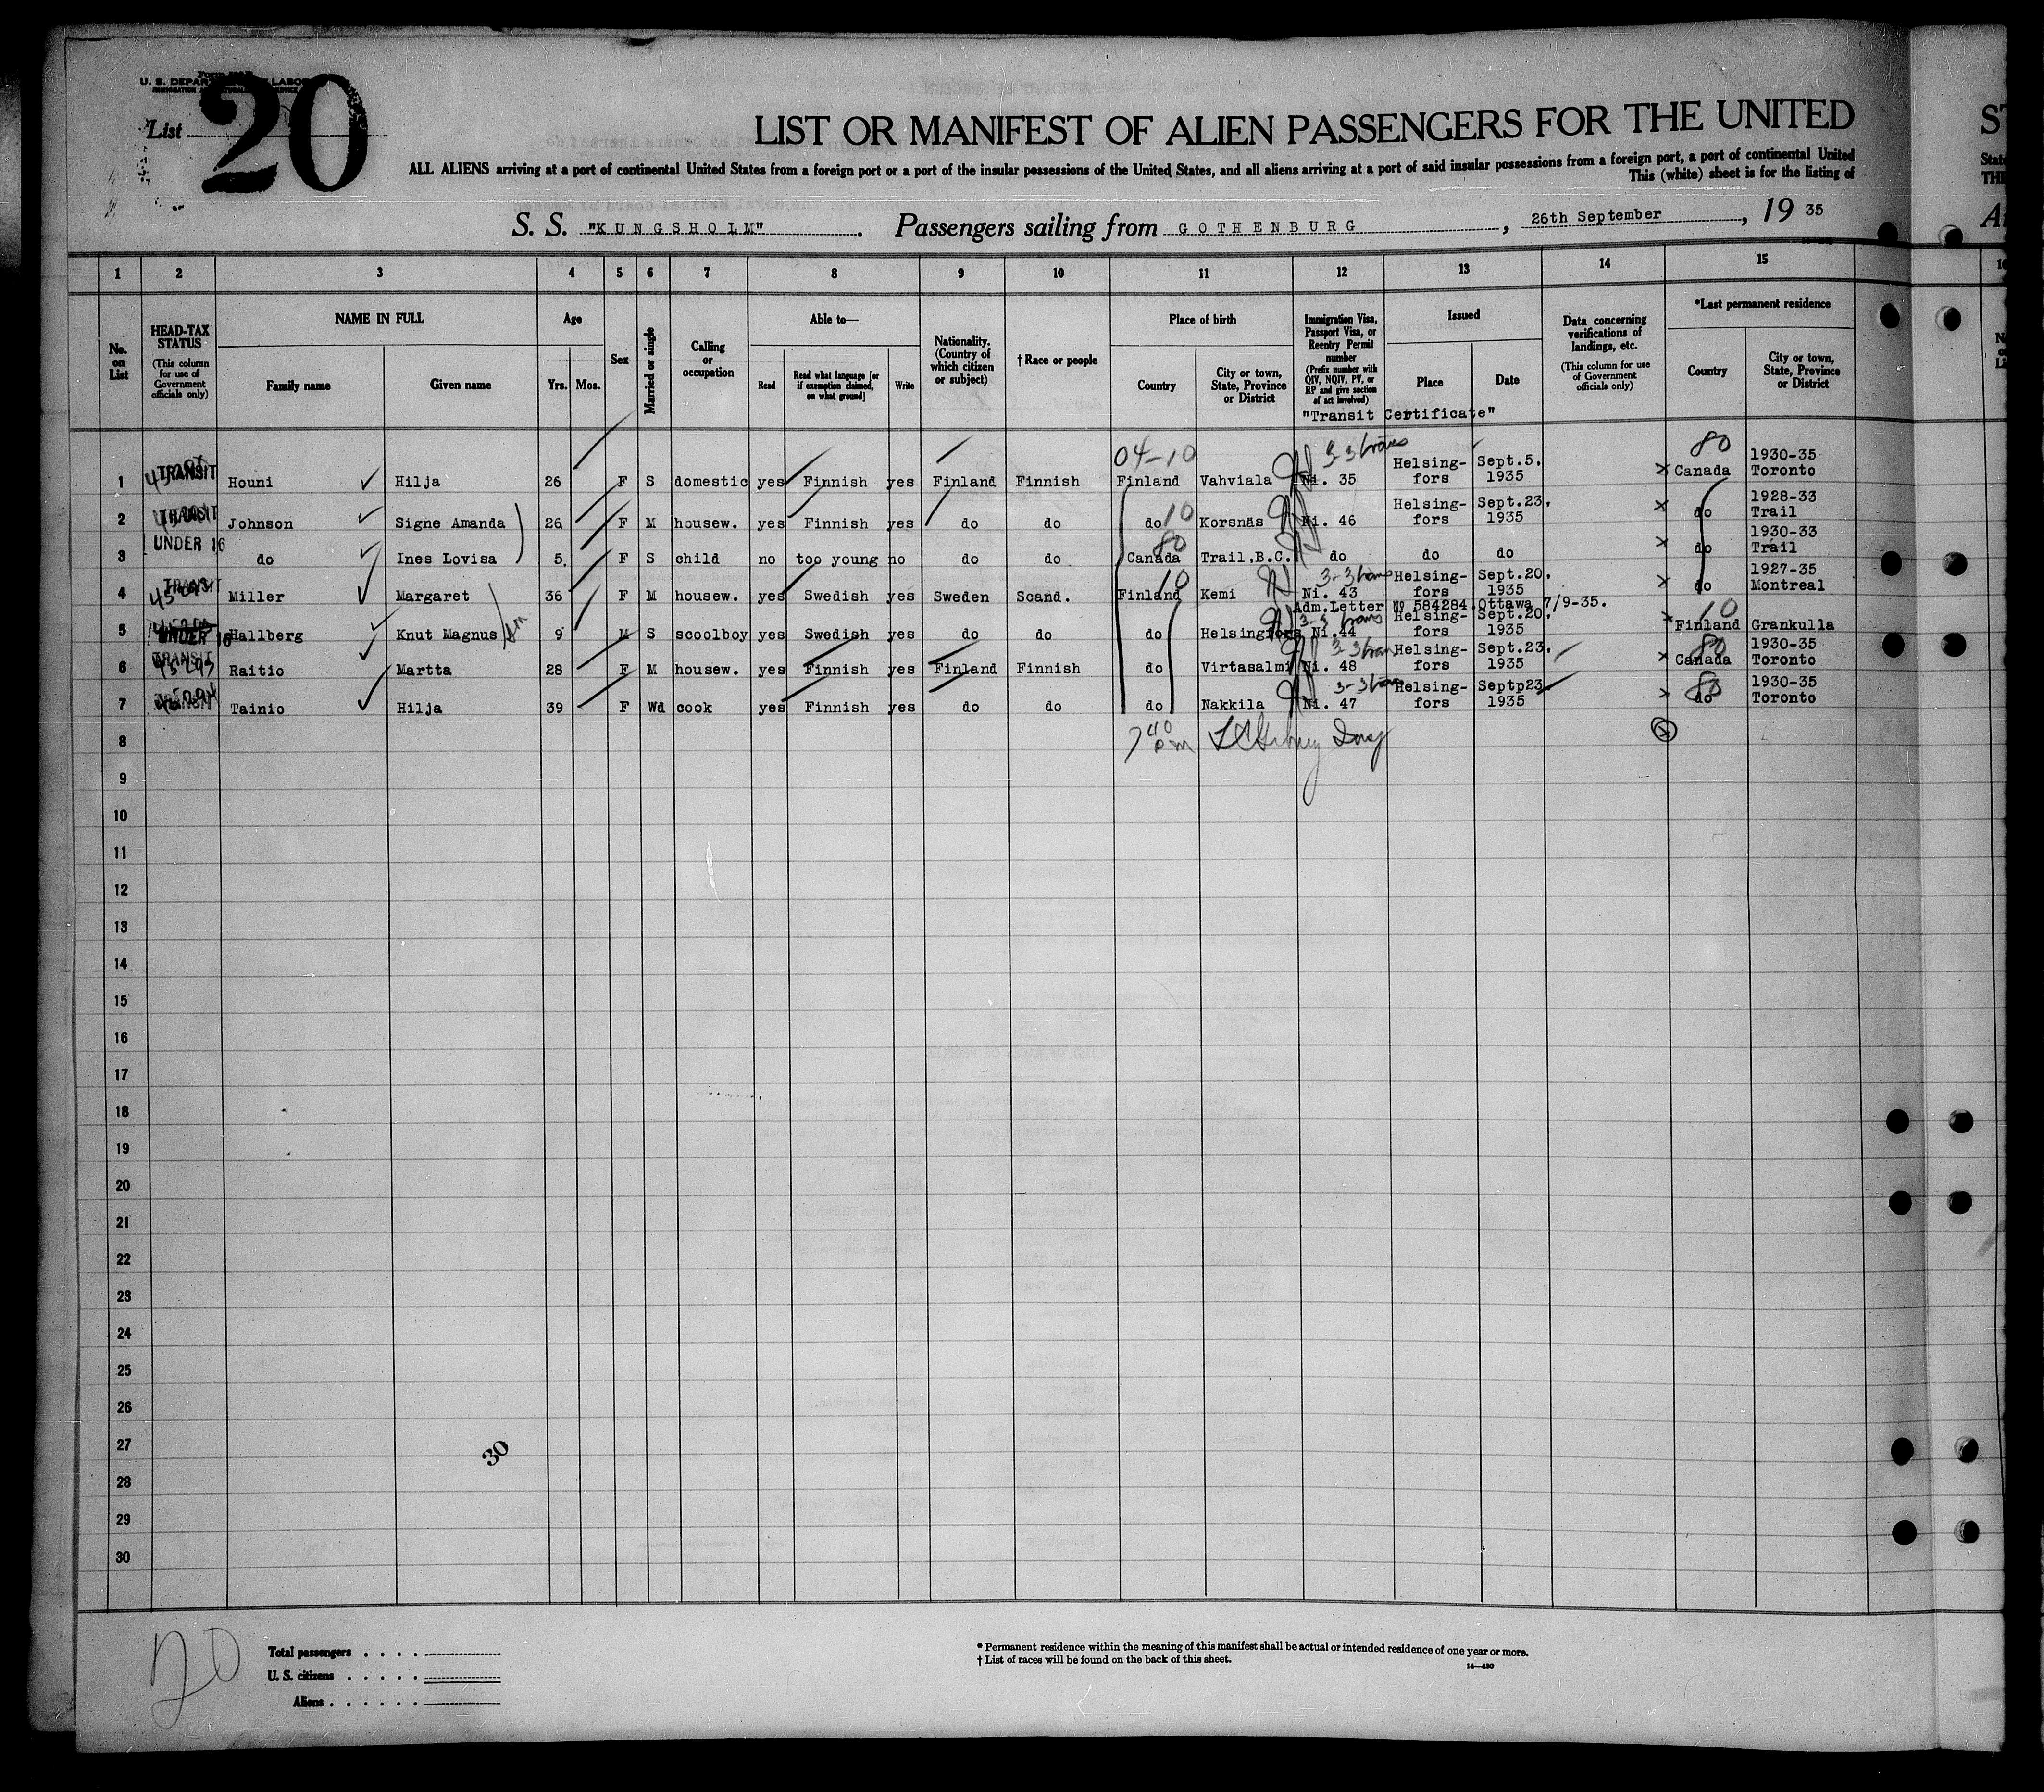 20
U. S. DEPARTMENT LABOR
List
LIST OR MANIFEST OF ALIEN PASSENGERS FOR THE UNITED
ALL ALIENS arriving at a port of continental United States from a foreign port or a port of the insular possessions of the United States, and all aliens arriving at a port of said insular possessions from a foreign port, a port of continental United
This (white) sheet is for the listing of
S. S. "KUNGSHOLM" . Passengers sailing from GOTHENBURG , 26th September , 19 35
1 2 3 4 5 6 7 8 9 10 11 12 13 14 15
No. on List
HEAD-TAX STATUS
(This column for use of Government officials only)
NAME IN FULL
Family name Given name
Age
Yrs. Mos.
Sex
Married or single
Calling or occupation
Able to—
Read
Read what language [or if exemption claimed, on what ground]
Write
Nationality. (Country of which citizen or subject)
† Race or people
Place of birth
Country
City or town, State, Province or District
Immigration Visa, Passport Visa, or Reentry Permit number
(Prefix number with QIV, NQIV, PV, or RP and give section of act involved)
Issued
Place Date
"Transit Certificate"
Data concerning verifications of landings, etc.
(This column for use of Government officials only)
*Last permanent residence
Country
City or town, State, Province or District
04-10 80
1 TRANSIT Houni Hilja 26 F S domestic yes Finnish yes Finland Finnish Finland Vahviala Ni. 35 Helsing-fors Sept.5. 1935 x Canada 1930-35 Toronto
2 TRANSIT Johnson Signe Amanda 26 F M housew. yes Finnish yes do do do 10 Korsnäs Ni. 46 Helsing-fors Sept.23. 1935 x do 1928-33 Trail
3 UNDER 16 do Ines Lovisa 5. F S child no too young no do do Canada 80 Trail.B.C. do do do x do 1930-33 Trail
4 TRANSIT Miller Margaret 36 F M housew. yes Swedish yes Sweden Scand. Finland 10 Kemi Ni. 43 Helsing-fors Sept.20. 1935 x do 1927-35 Montreal
Adm.Letter No 584284.Ottawa 7/9-35.
5 UNDER 16 Hallberg Knut Magnus 9 M S scoolboy yes Swedish yes do do do Helsingfors Ni.44 Helsing-fors Sept.20. 1935 x Finland 10 Grankulla
6 TRANSIT Raitio Martta 28 F M housew. yes Finnish yes Finland Finnish do Virtasalmi Ni. 48 Helsing-fors Sept.23. 1935 x Canada 80 1930-35 Toronto
7 TRANSIT Tainio Hilja 39 F Wd cook yes Finnish yes do do do Nakkila Ni. 47 Helsing-fors Septp23 1935 x do 80 1930-35 Toronto
8 7 40 pm
9
10
11
12
13
14
15
16
17
18
19
20
21
22
23
24
25
26
27
28
29
30
30
20
Total passengers
U. S. citizens
Aliens
* Permanent residence within the meaning of this manifest shall be actual or intended residence of one year or more.
† List of races will be found on the back of this sheet.
14—430